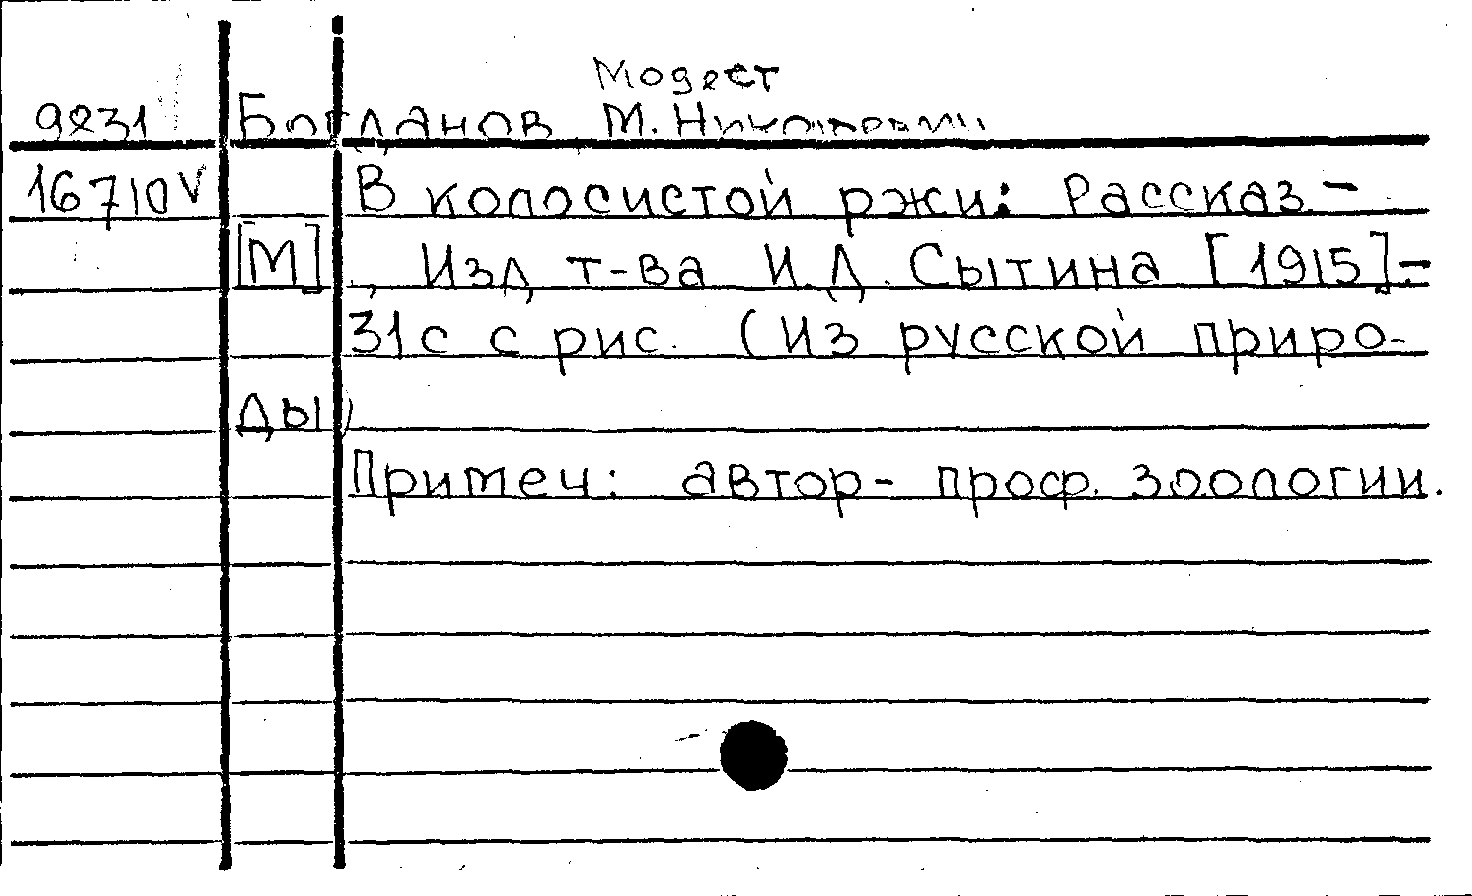 Модест
9231 Богданов М. Николаевич
16710V В колосистой ржи: Рассказ -
[М], Изд т-ва И.Д. Сытина [1915]-
31с с рис. (Из русской приро-
ды)
Примеч: автор- проф. зоологии.